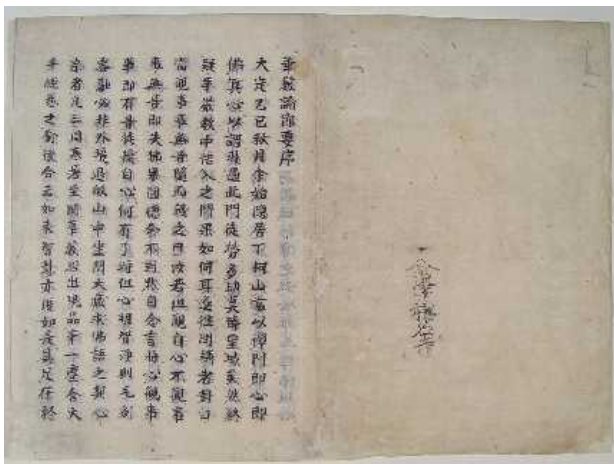 華嚴論節要序
大定乙巳秋月余始隱居下柯山常以禪門即心即
佛冥心以謂非遇此門徒勞多劫莫臻聖域矣然終
疑華嚴教中悟入之門果如何耳遂往問講者對曰
當觀事事無碍隨而誡之曰汝若但觀自心不觀事
事無碍即失佛果圓德余不對默自念言將心觀事
事即有碍徒擾自心何有了時但心明智淨則毛刹
容融必非外境退歸山中坐閱大藏求佛語之契心
宗者凡三周寒暑至閱華嚴經出現品舉一塵含大
千經卷之喻後合云如來智慧亦復如是具足在於